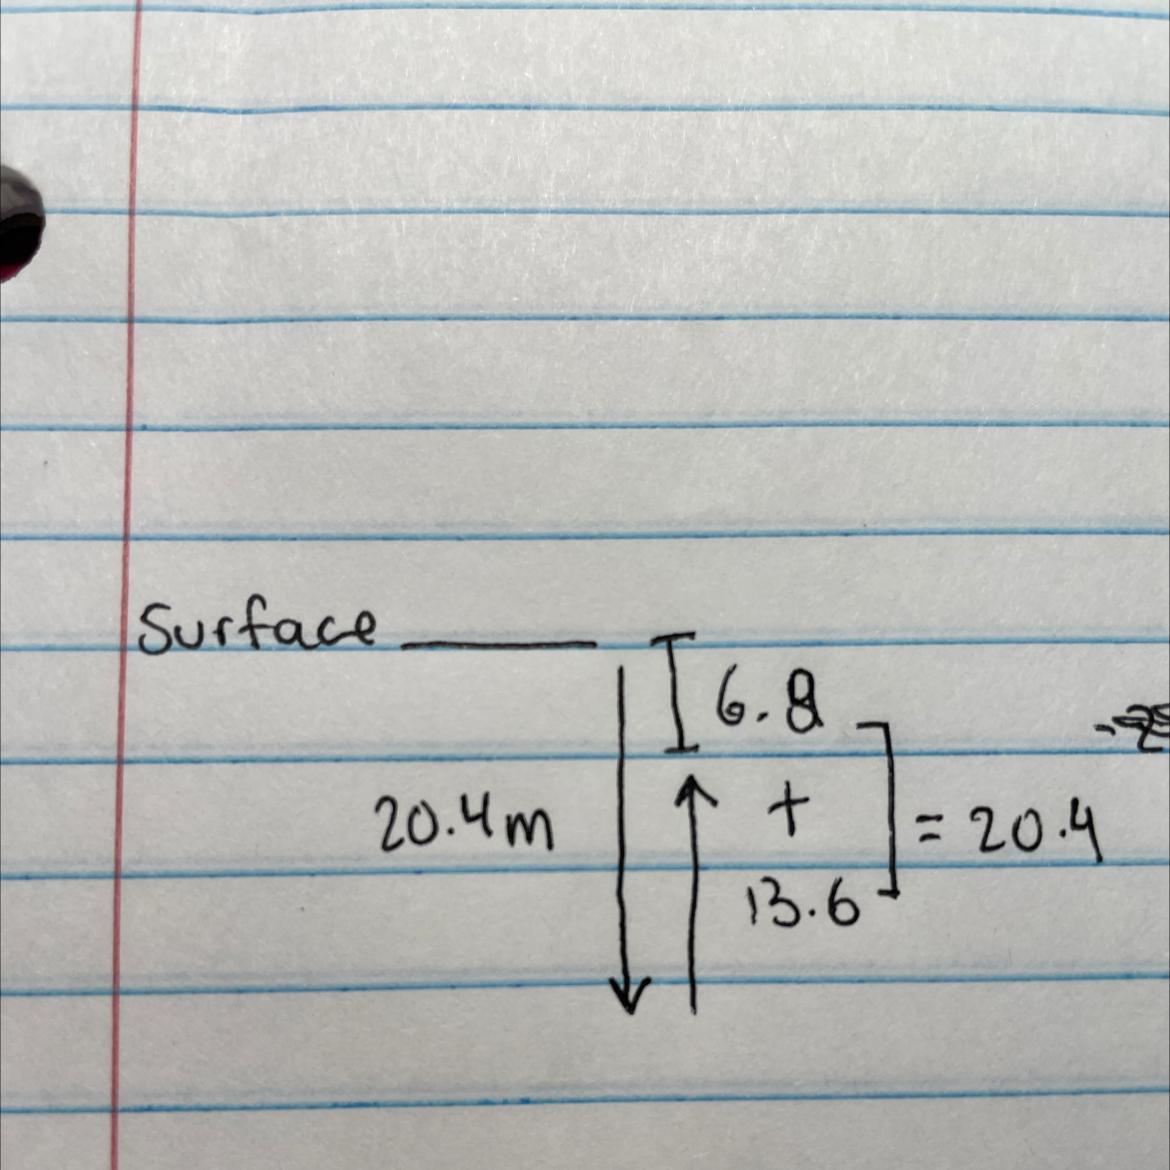 Surface
6.8
+
20.4m
= 20.4
13.6